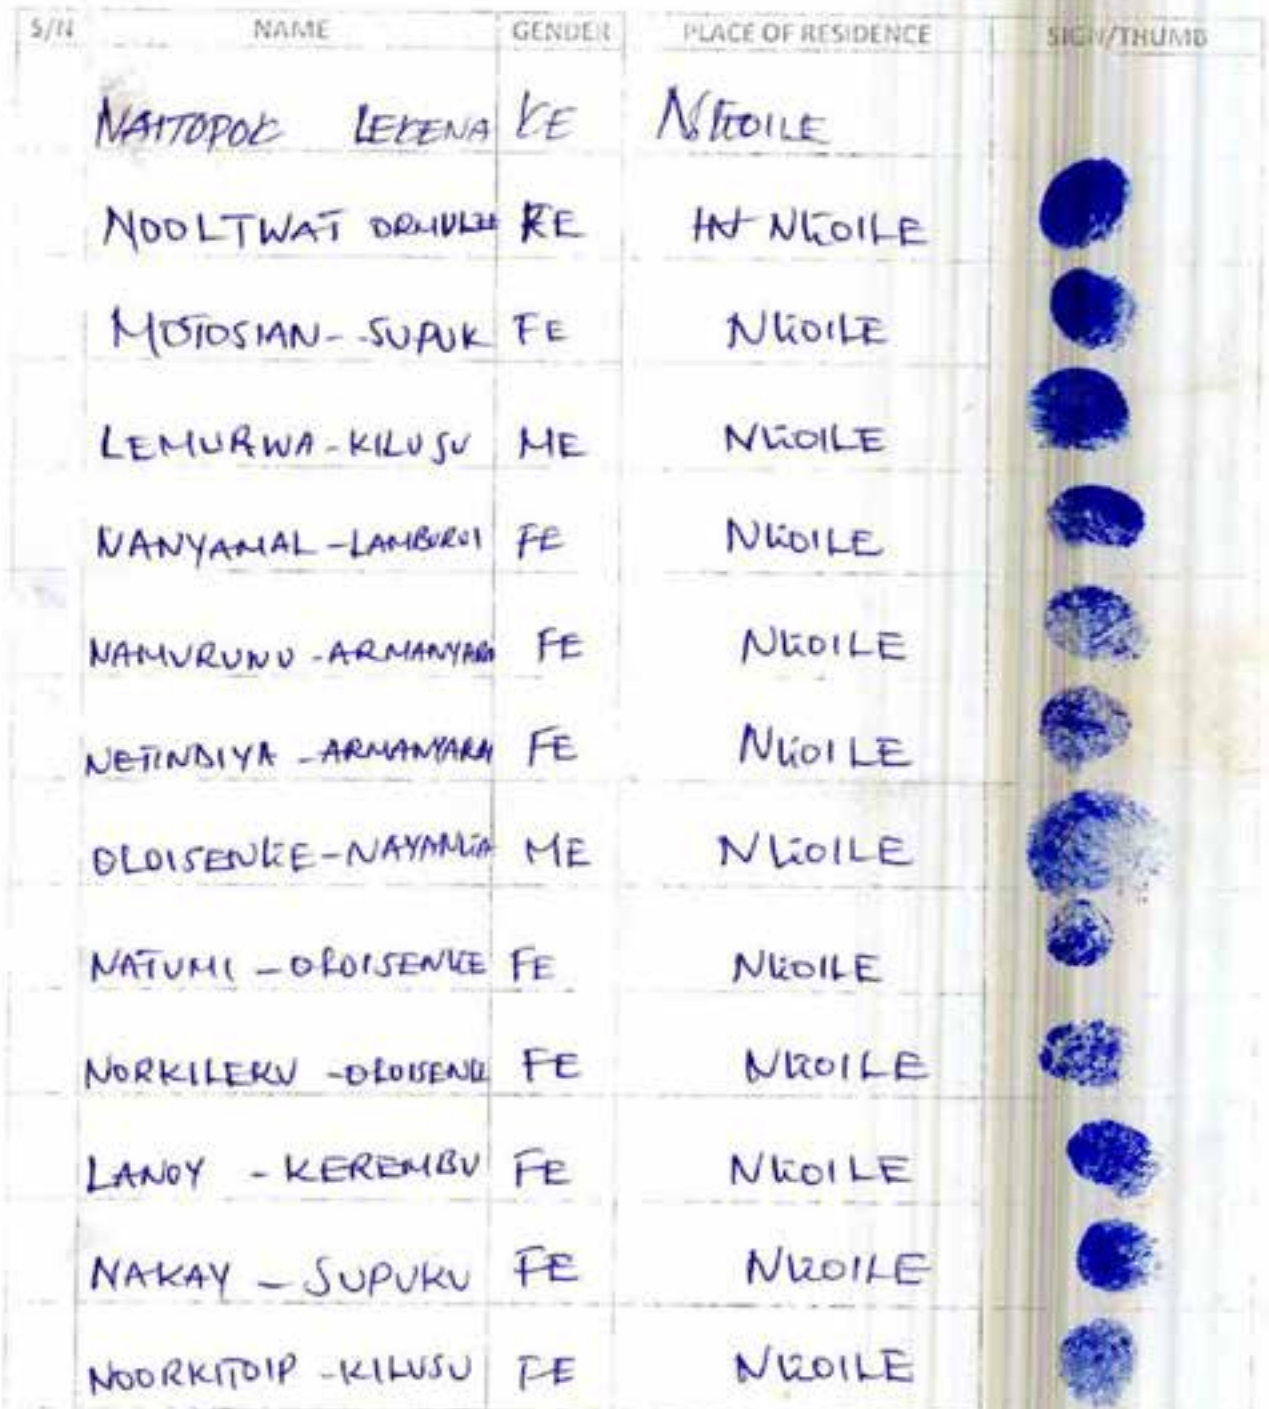 S/N NAME GENDER PLACE OF RESIDENCE SIGN/THUMB
NAITOPOK LEKENA KE NKOILE
NOOLTWAT KE NKOILE
MOTOSIAN--SUPUK FE NKOILE
LEMURWA-KILUSU ME NKOILE
NANYAMAL-LAMBURUI FE NKOILE
NAMURUNU-ARMANYARA FE NKOILE
NETINDIYA-ARMANYARA FE NKOILE
OLOISENKE-NAYANKA ME NKOILE
NATUMI-OLOISENKE FE NKOILE
NORKILEKU-OLOISENKE FE NKOILE
LANOY - KEREMBU FE NKOILE
NAKAY - SUPUKU FE NKOILE
NOORKITOIP-KILUSU FE NKOILE